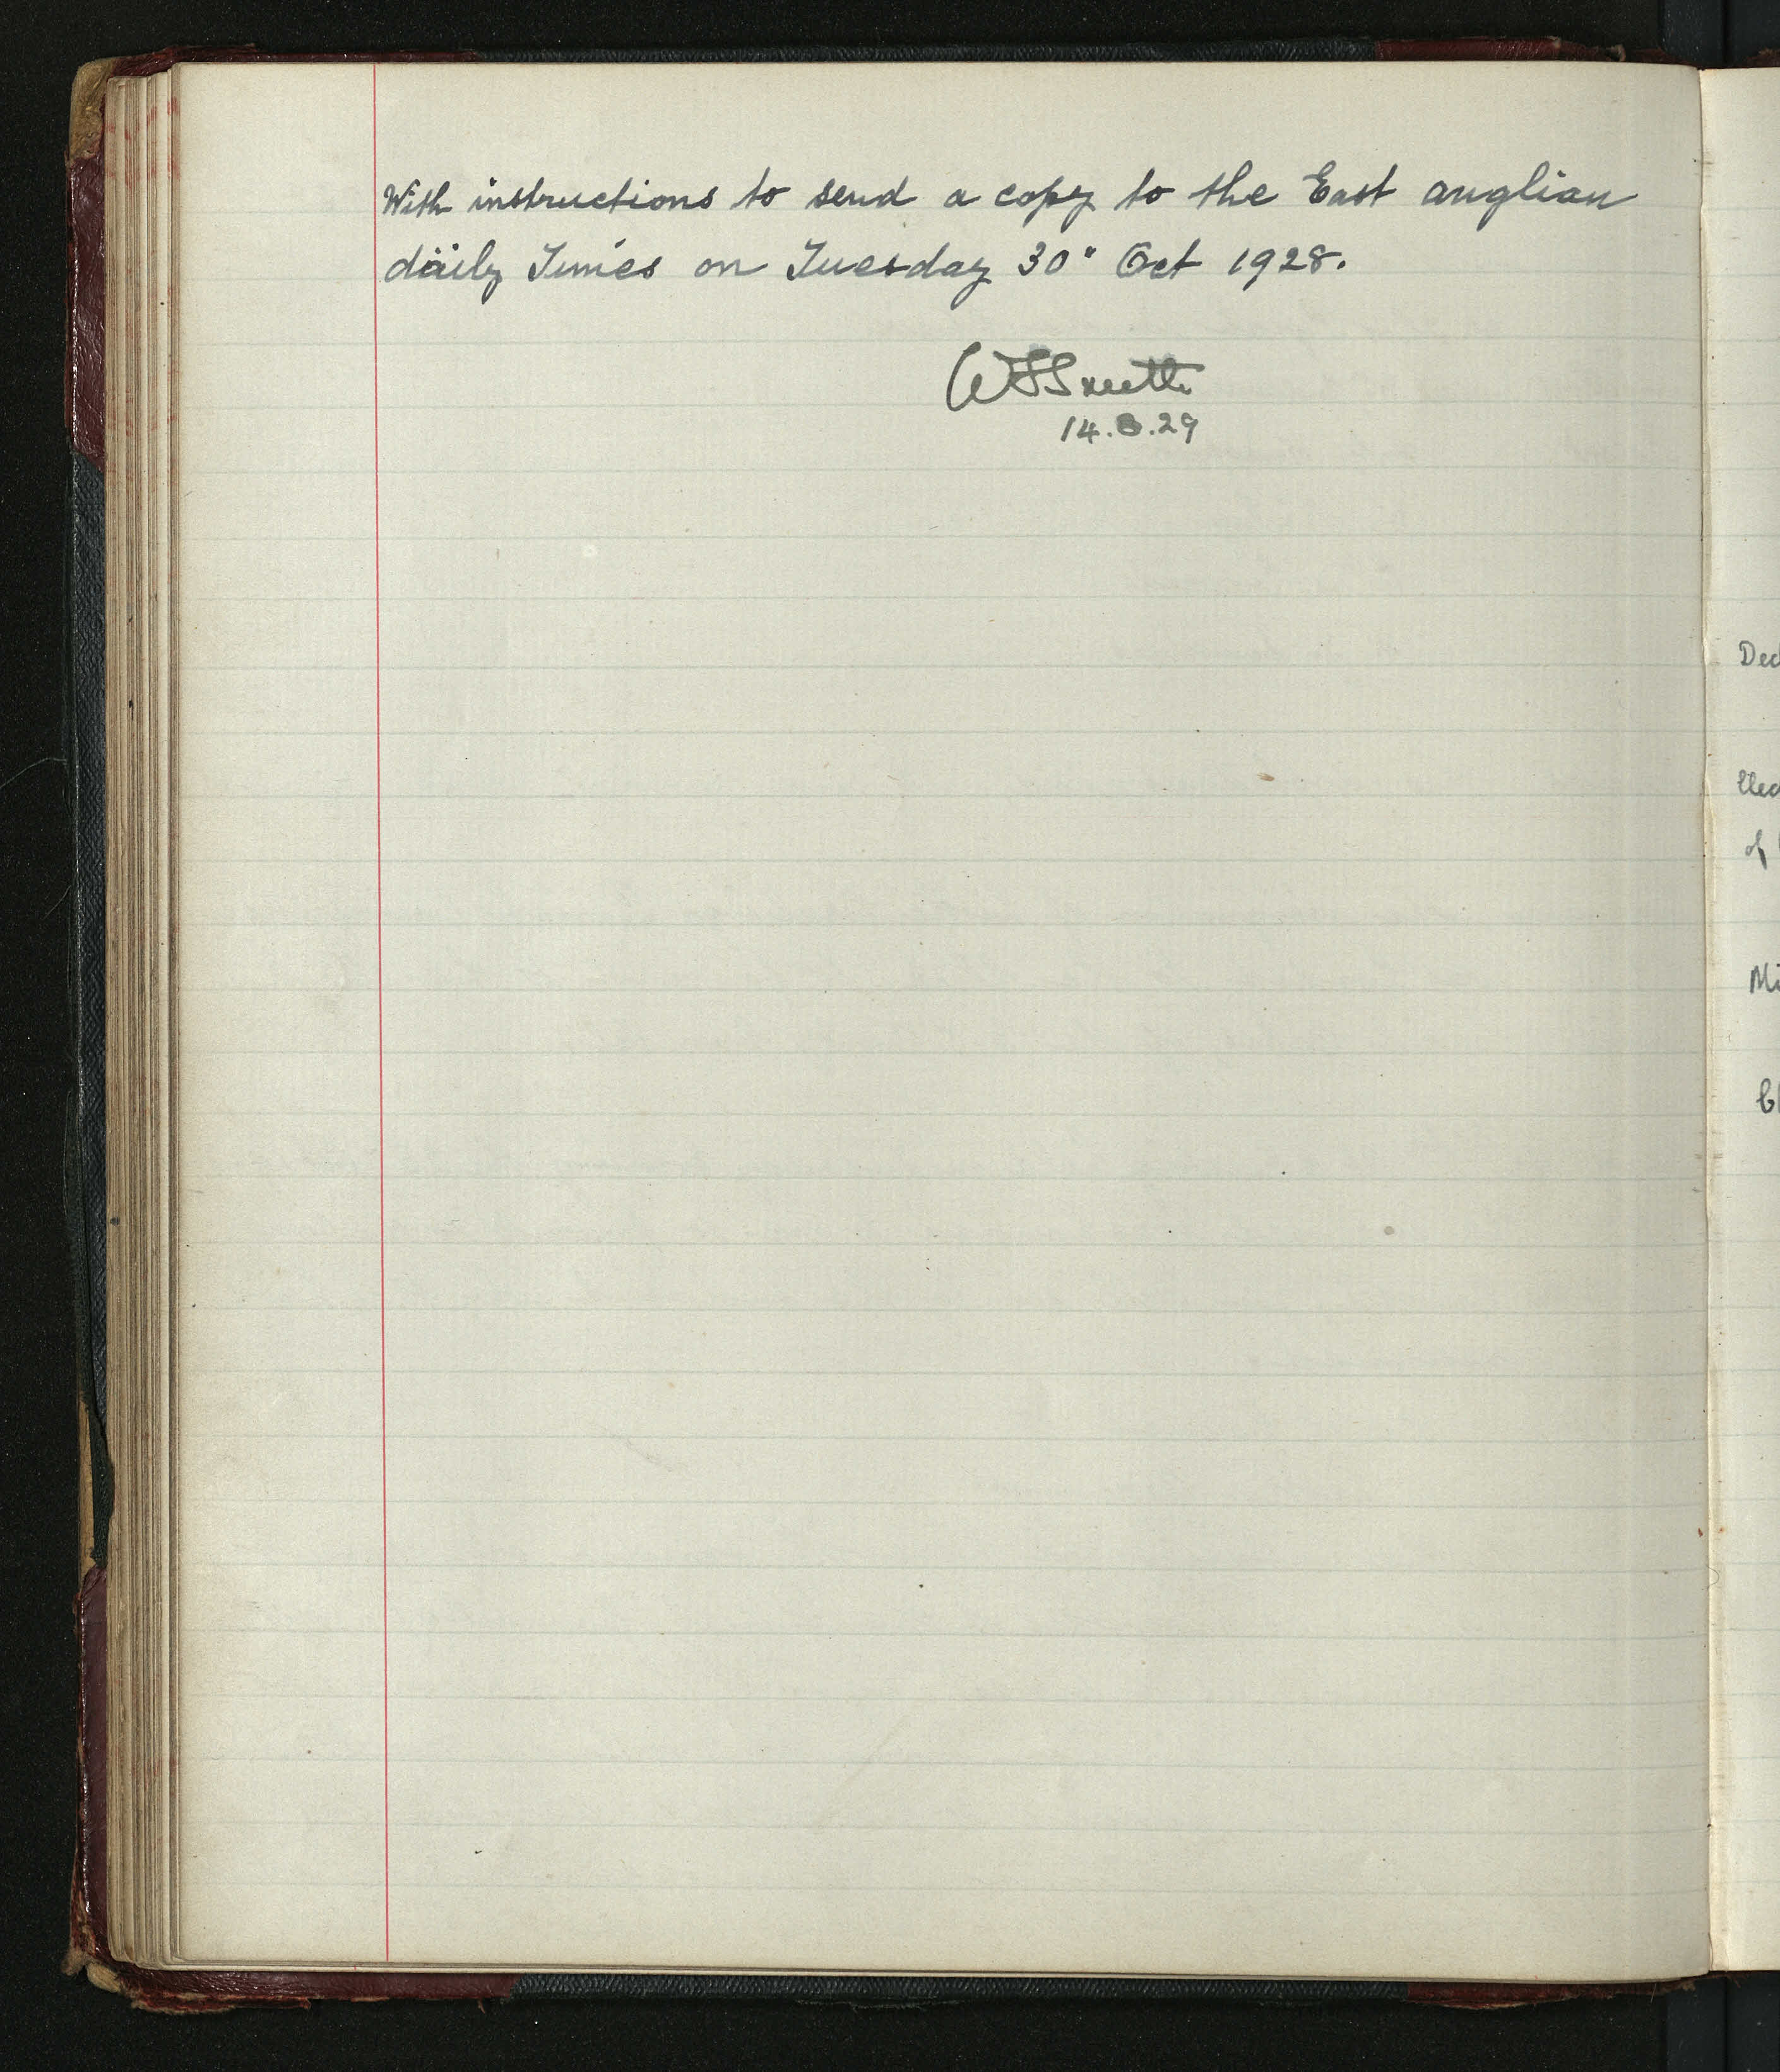 With instructions to send a copy to the East anglian
daily Times on Tuesday 30" Oct 1928.
14.8.29
Dec
of
Mi